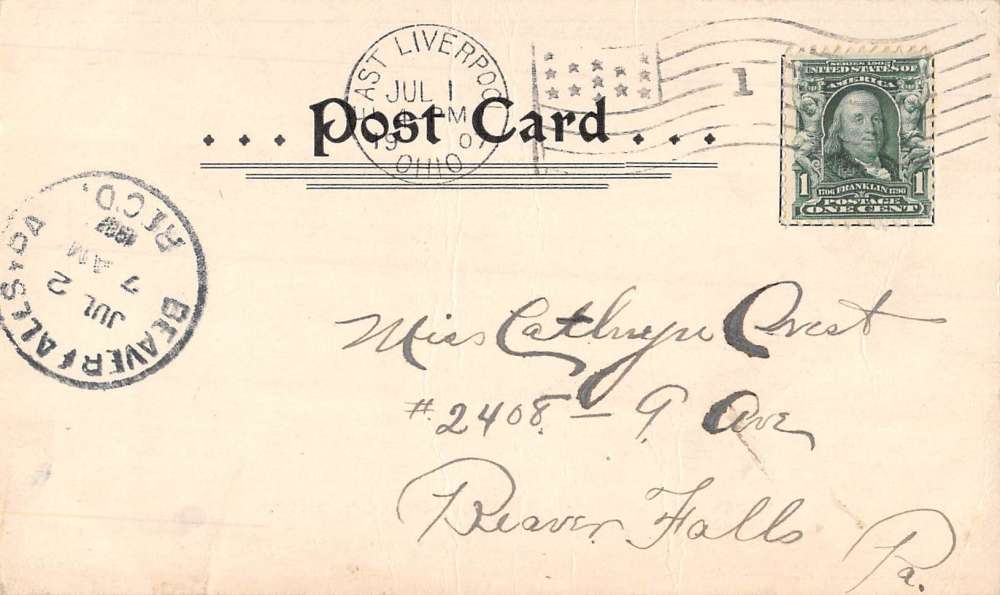 EAST LIVERPOOL
JUL 1
PM
19 07
OHIO
1
... Post Card ...
SERIES 1902
UNITED STATES OF
AMERICA
1 1706 FRANKLIN 1790 1
POSTAGE
ONE CENT
BEAVER FALLS PA
JUL 2
7 AM
1907
REC'D.
Miss Cathryn Crest
#2408 - 9 Ave
Beaver Falls
Pa.